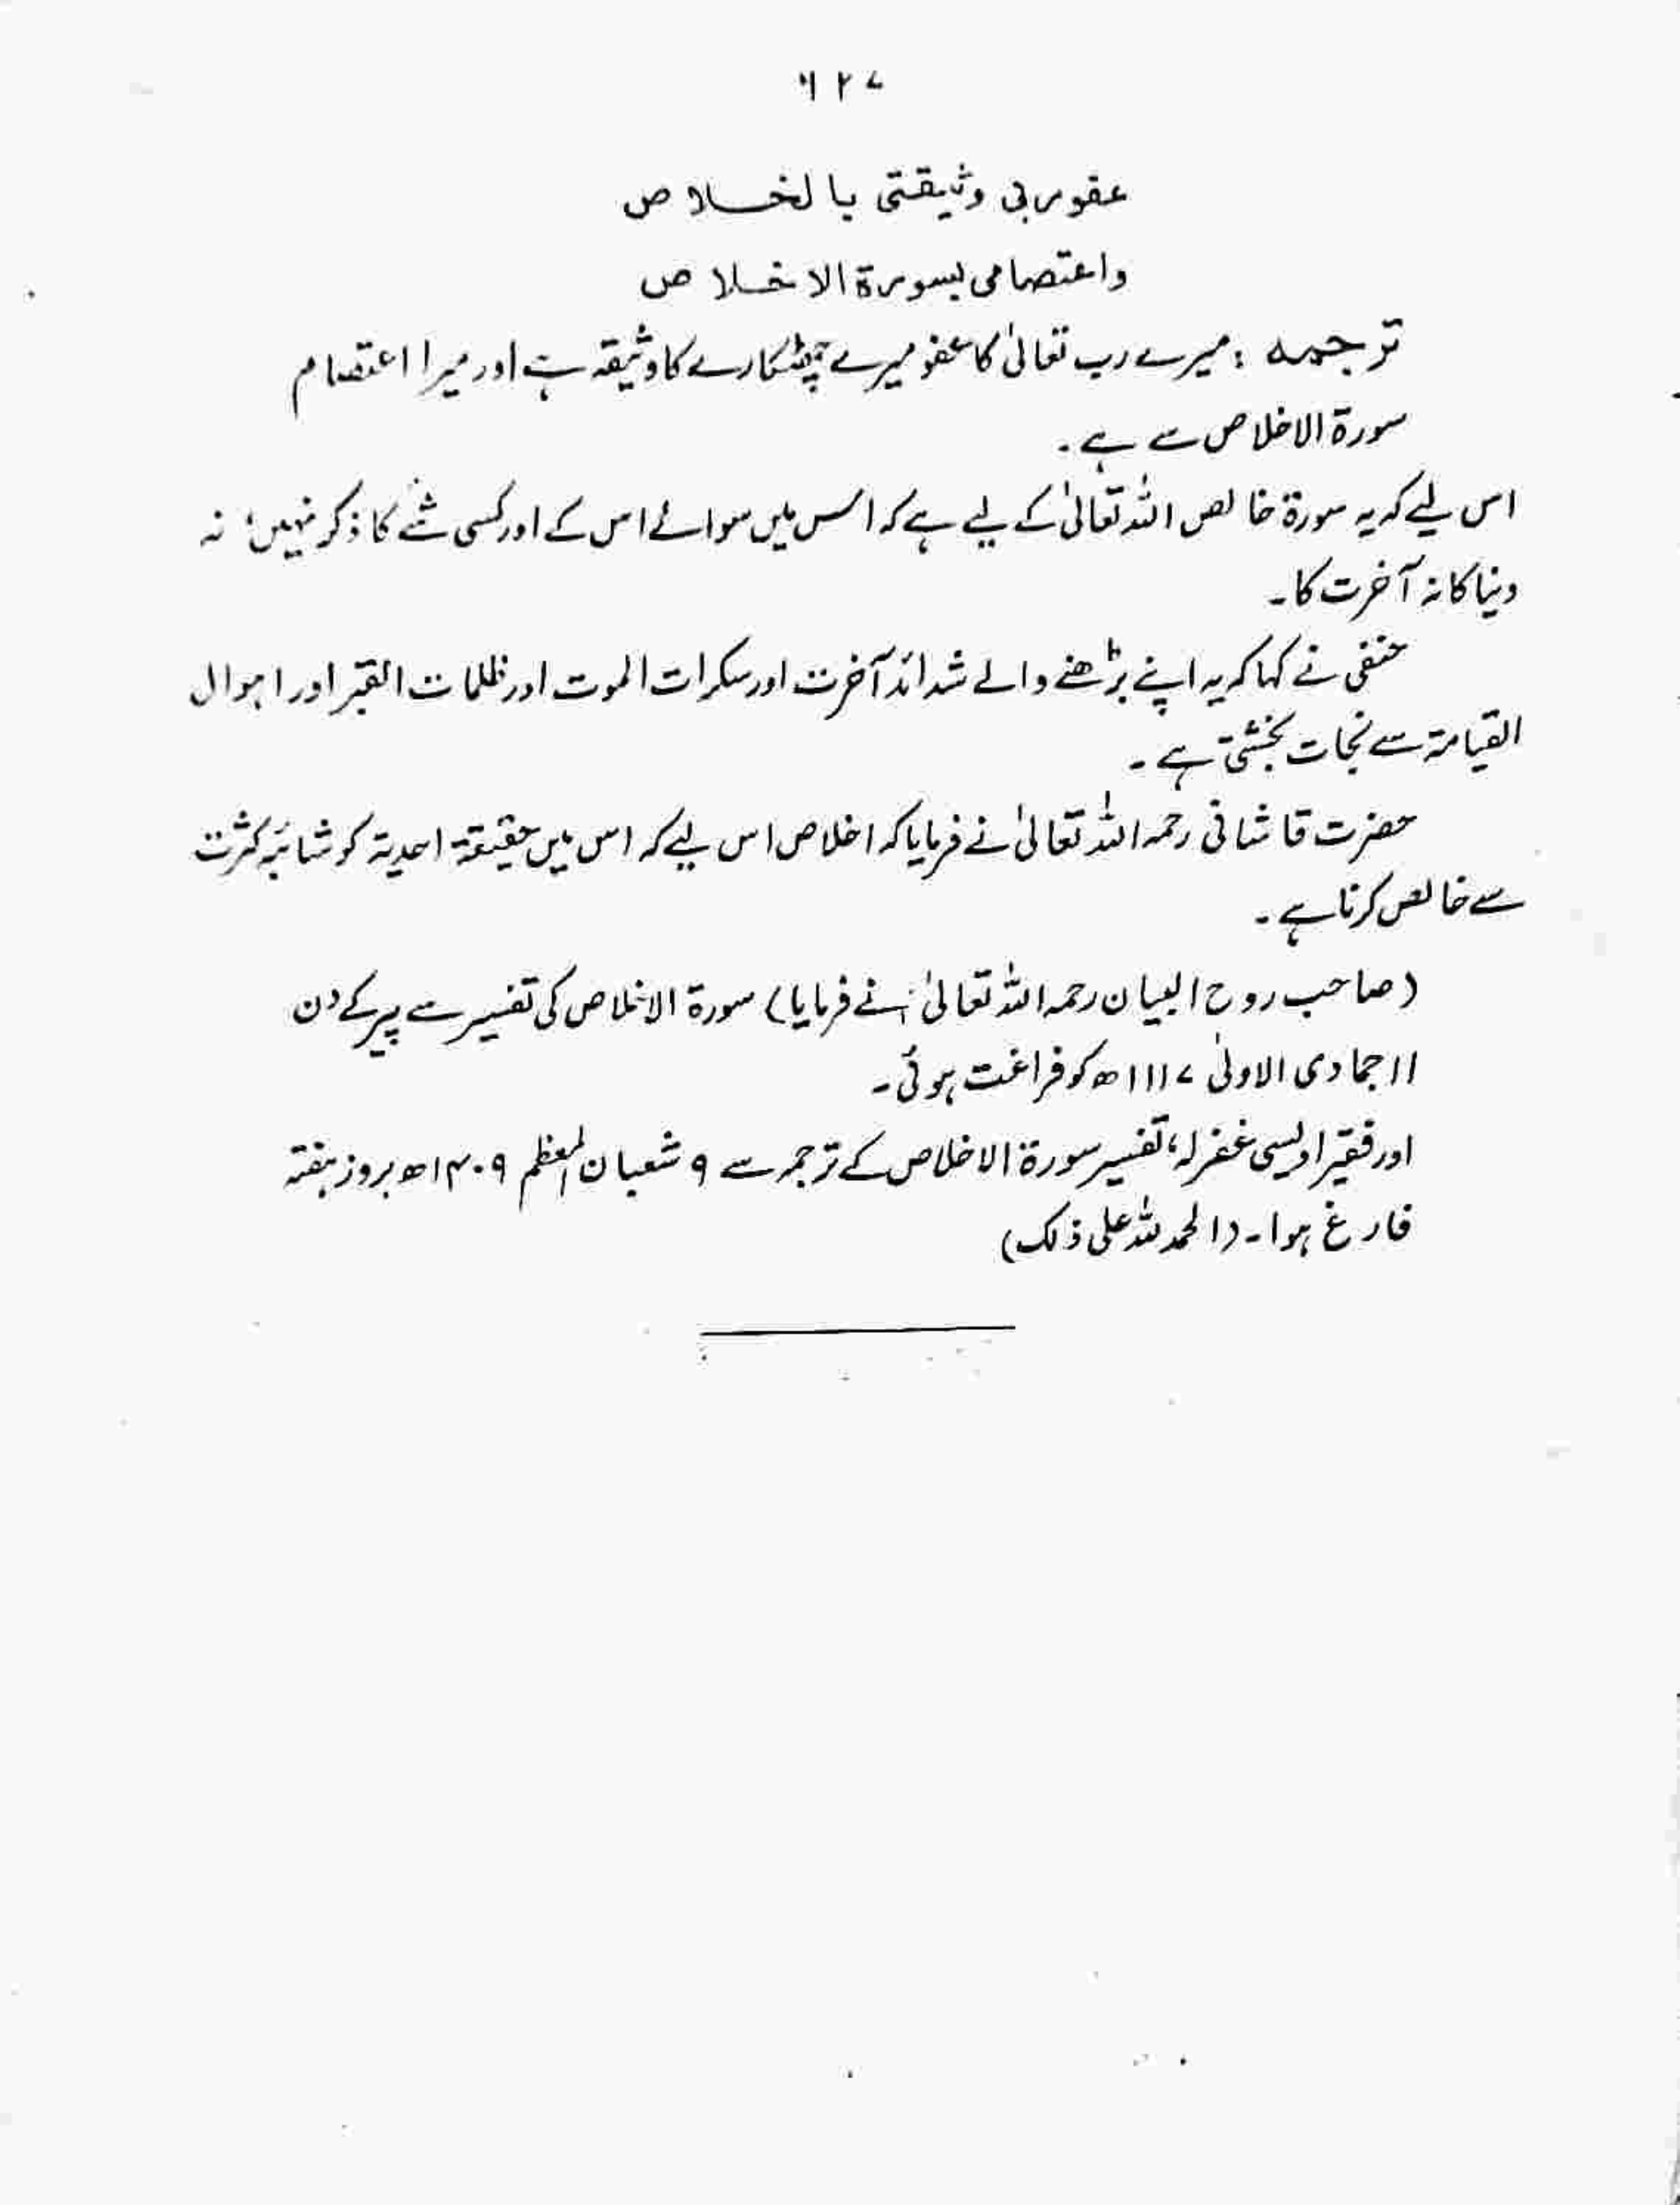 ۶۲۷
عفو ربی وثیقتی بالخلاص
واعتصامی بسورة الاخلاص
ترجمہ : میرے رب تعالیٰ کا عفو میرے چھٹکارے کا وثیقہ ہے اور میرا اعتصام
سورۃ الاخلاص سے ہے ۔
اس لیے کہ یہ سورۃ خالص اللہ تعالیٰ کے لیے ہے کہ اس میں سوائے اس کے اور کسی شے کا ذکر نہیں ، نہ
دنیا کا نہ آخرت کا ۔
حنفی نے کہا کہ یہ اپنے پڑھنے والے شدائد آخرت اور سکرات الموت اور ظلمات القبر اور اہوال
القیامۃ سے نجات بخشتی ہے ۔
حضرت قاشانی رحمہ اللہ تعالیٰ نے فرمایا کہ اخلاص اس لیے کہ اس میں حقیقۃ احدیۃ کو شائبہ کثرت
سے خالص کرنا ہے ۔
(صاحب روح البیان رحمہ اللہ تعالیٰ نے فرمایا) سورۃ الاخلاص کی تفسیر سے پیر کے دن
۱۱ جمادی الاولیٰ ۱۱۱۷ھ کو فراغت ہوئی ۔
اور فقیر اویسی غفرلہ، تفسیر سورۃ الاخلاص کے ترجمہ سے ۹ شعبان المعظم ۱۴۰۹ھ بروز ہفتہ
فارغ ہوا ۔ (الحمد للہ علی ذلک)